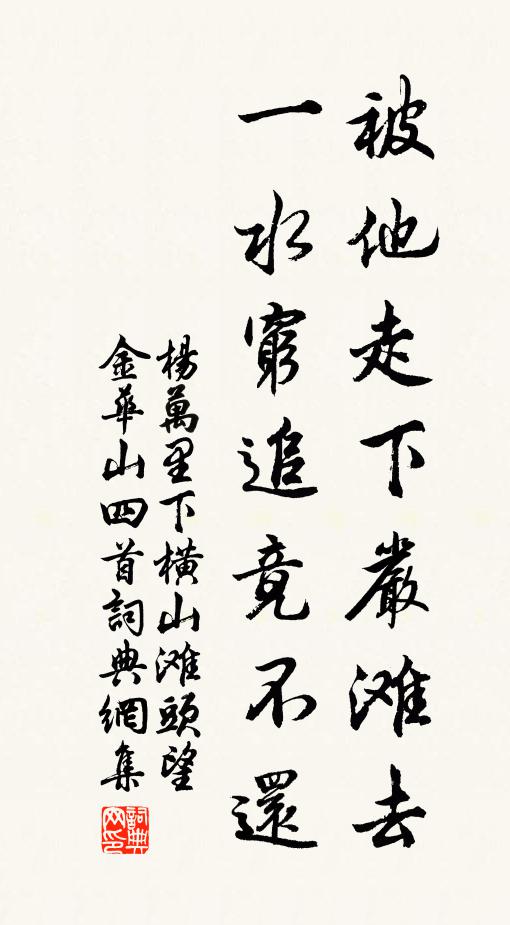 被他走下嚴滩去
一水窮追竟不還
楊萬里下横山滩頭望
金華山四首詞典網集
詞典网印